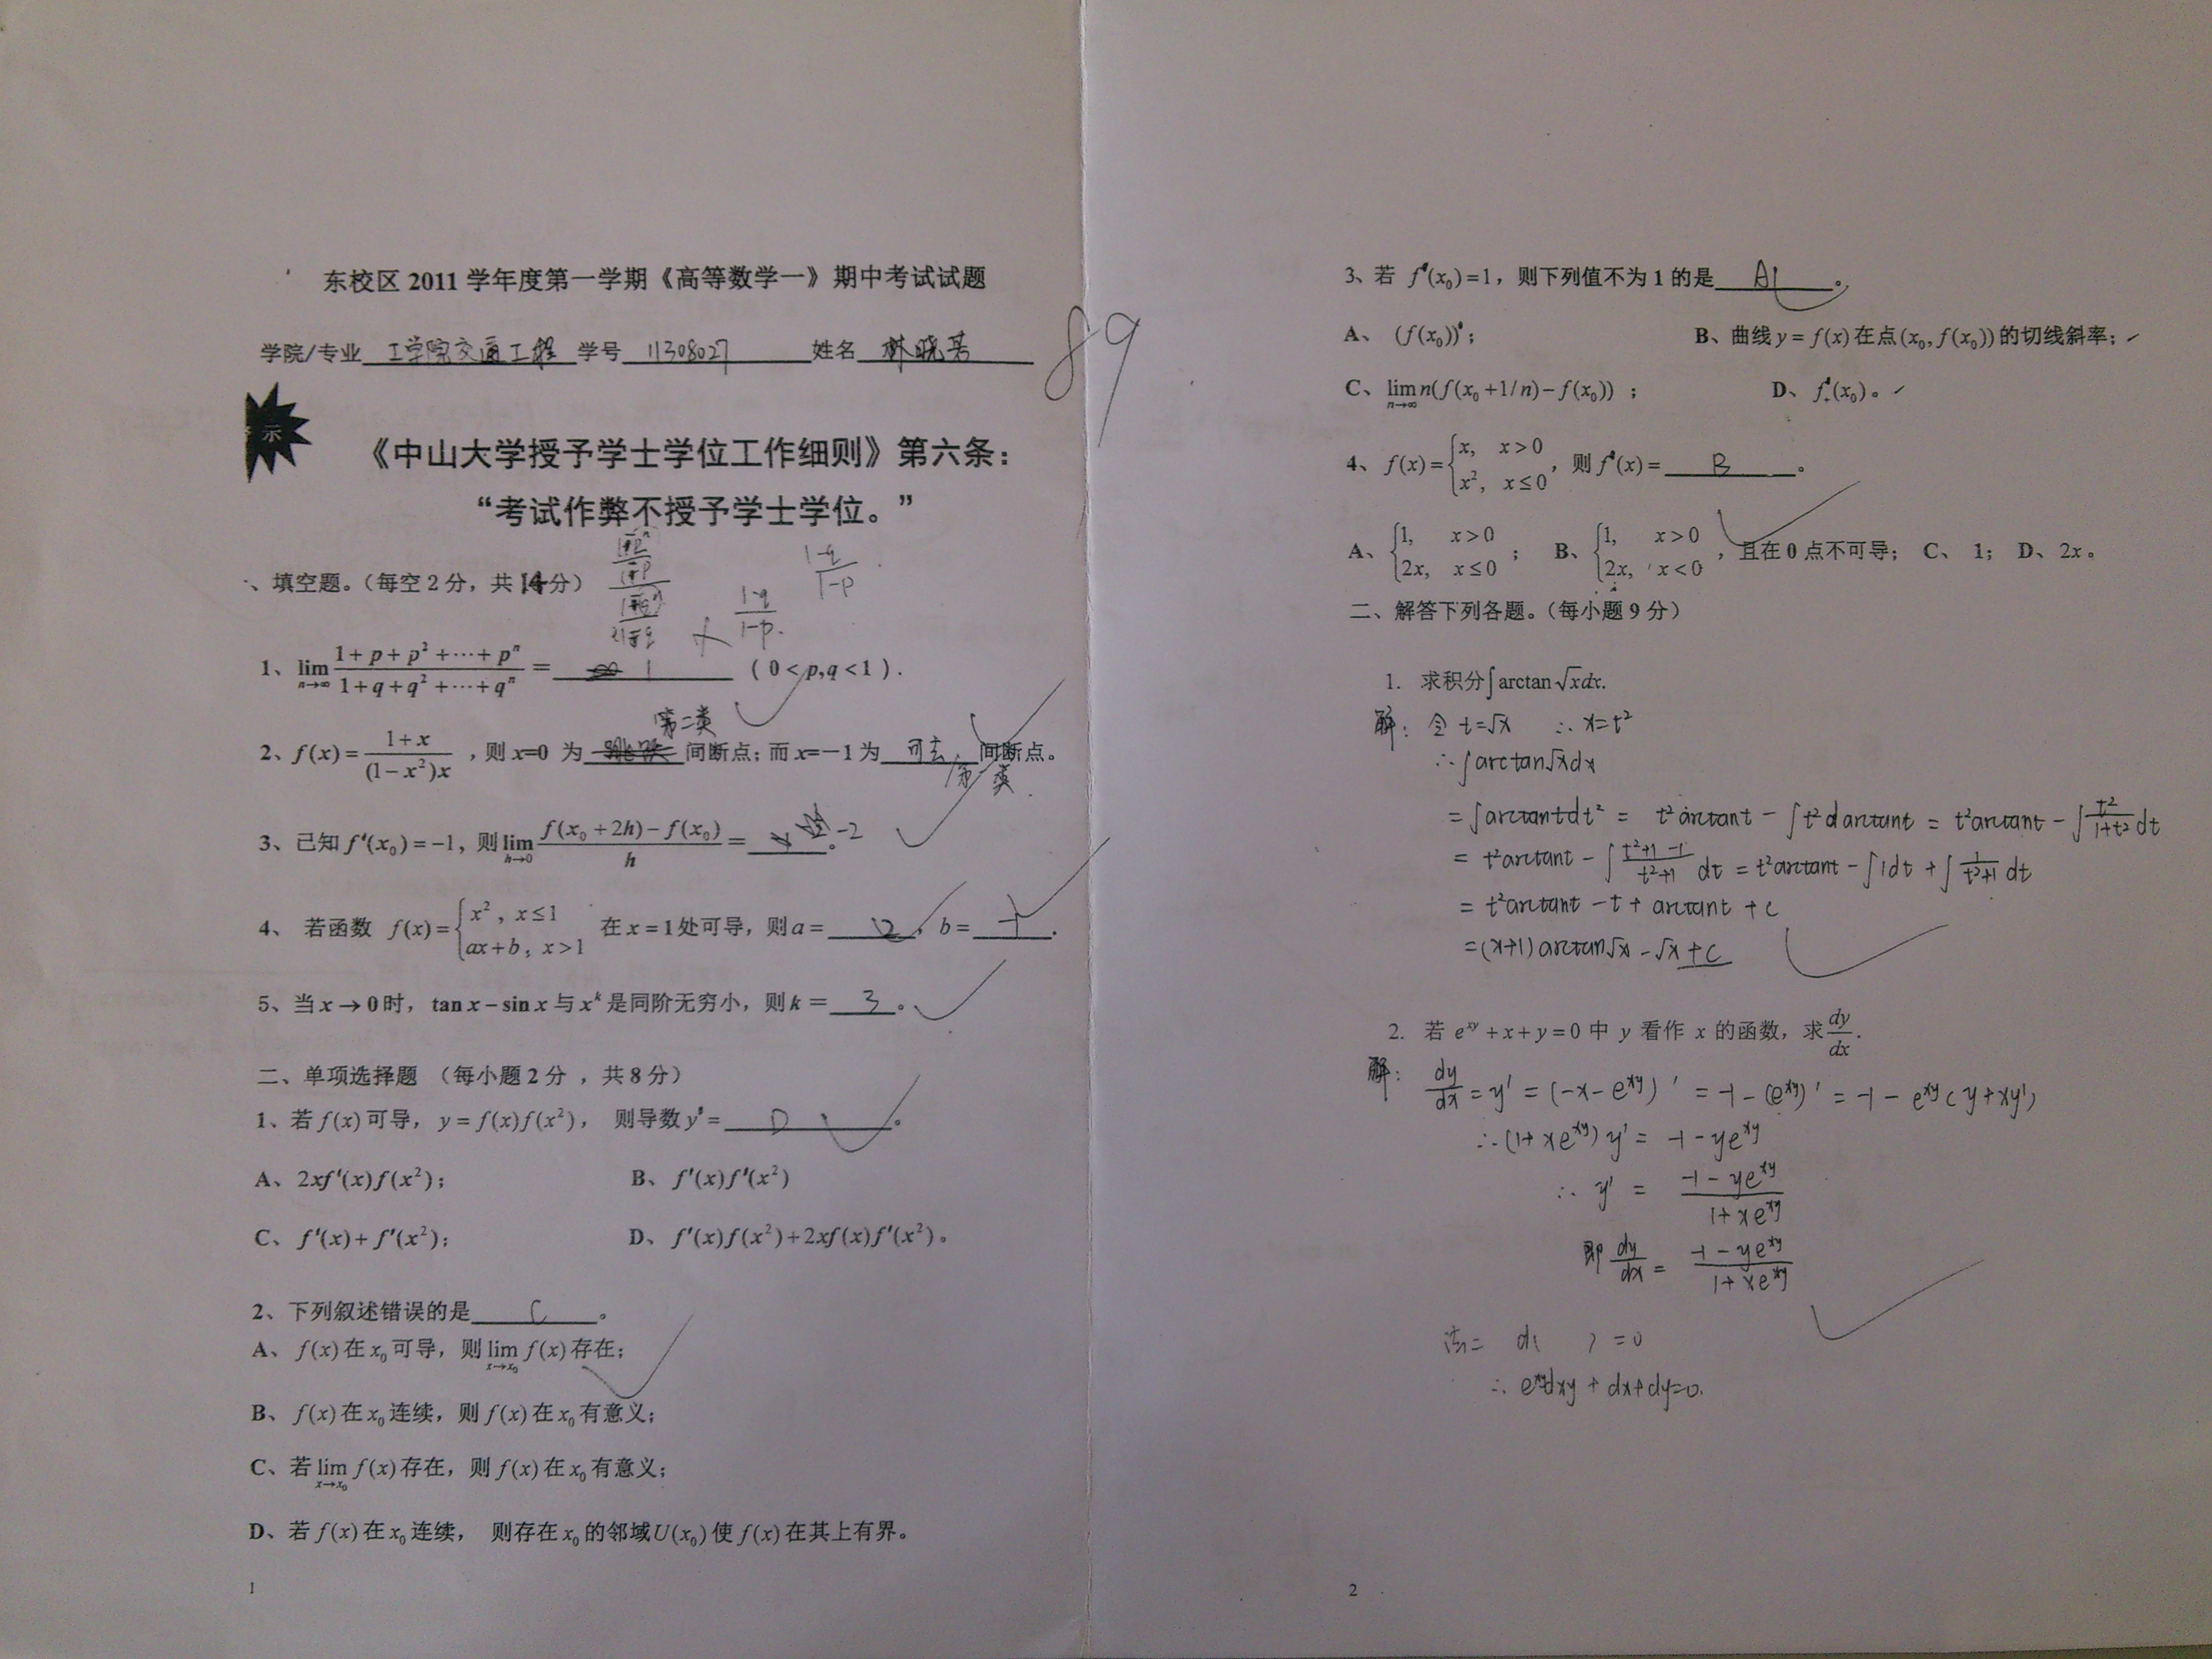 东校区 2011 学年度第一学期《高等数学一》期中考试试题
学院/专业 工学院交通工程 学号 11308027 姓名 林晓芳
89
示
《中山大学授予学士学位工作细则》第六条：
“考试作弊不授予学士学位。”
、填空题。（每空 2 分，共 14 分）
1-q/1-p
1-q/1-p.
1、lim n→∞ (1+p+p²+⋯+pⁿ)/(1+q+q²+⋯+qⁿ) = 1 （0<p,q<1）.
第二类
2、f(x)=(1+x)/((1−x²)x)，则 x=0 为 间断点；而 x=−1 为 可去 间断点。
第一类
3、已知 f′(x₀)=−1，则 lim h→0 (f(x₀+2h)−f(x₀))/h = 。-2
4、 若函数 f(x)={x², x≤1; ax+b, x>1 在 x=1 处可导，则 a= 2 ，b= -1 .
5、当 x→0 时，tan x−sin x 与 xᵏ 是同阶无穷小，则 k = 3 。
二、单项选择题 （每小题 2 分 ，共 8 分）
1、若 f(x) 可导，y=f(x)f(x²)， 则导数 y′= D 。
A、2xf′(x)f(x²)； B、f′(x)f′(x²)
C、f′(x)+f′(x²)； D、f′(x)f(x²)+2xf(x)f′(x²)。
2、下列叙述错误的是 C 。
A、f(x) 在 x₀ 可导，则 lim x→x₀ f(x) 存在；
B、f(x) 在 x₀ 连续，则 f(x) 在 x₀ 有意义；
C、若 lim x→x₀ f(x) 存在，则 f(x) 在 x₀ 有意义；
D、若 f(x) 在 x₀ 连续， 则存在 x₀ 的邻域 U(x₀) 使 f(x) 在其上有界。
1
3、若 f′(x₀)=1，则下列值不为 1 的是 A 。
A、(f(x₀))′； B、曲线 y=f(x) 在点 (x₀, f(x₀)) 的切线斜率；
C、lim n→∞ n(f(x₀+1/n)−f(x₀)) ； D、f₊′(x₀)。
4、f(x)={x, x>0; x², x≤0，则 f′(x)= B 。
A、{1, x>0; 2x, x≤0 ； B、{1, x>0; 2x, x<0 ，且在 0 点不可导； C、 1； D、2x。
二、解答下列各题。（每小题 9 分）
1. 求积分∫arctan√x dx.
解：令 t=√x ∴x=t²
∴∫arctan√x dx
=∫arctant dt² = t²arctant − ∫t²d arctant = t²arctant − ∫t²/(1+t²) dt
= t²arctant − ∫(t²+1−1)/(t²+1) dt = t²arctant − ∫1dt + ∫1/(t²+1) dt
= t²arctant − t + arctant + c
=(x+1)arctan√x − √x + c
2. 若 e^{xy}+x+y=0 中 y 看作 x 的函数，求 dy/dx.
解：dy/dx = y′ = (−x−e^{xy})′ = −1−(e^{xy})′ = −1−e^{xy}(y+xy′)
∴(1+xe^{xy})y′ = −1−ye^{xy}
∴ y′ = (−1−ye^{xy})/(1+xe^{xy})
即 dy/dx = (−1−ye^{xy})/(1+xe^{xy})
法二 d( )=0
∴ e^{xy}dxy + dx+dy=0.
2